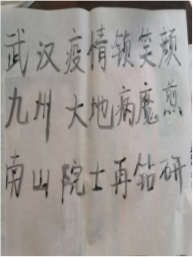 武汉疫情锁笑颜
九州大地病魔煎
南山院士再钻研